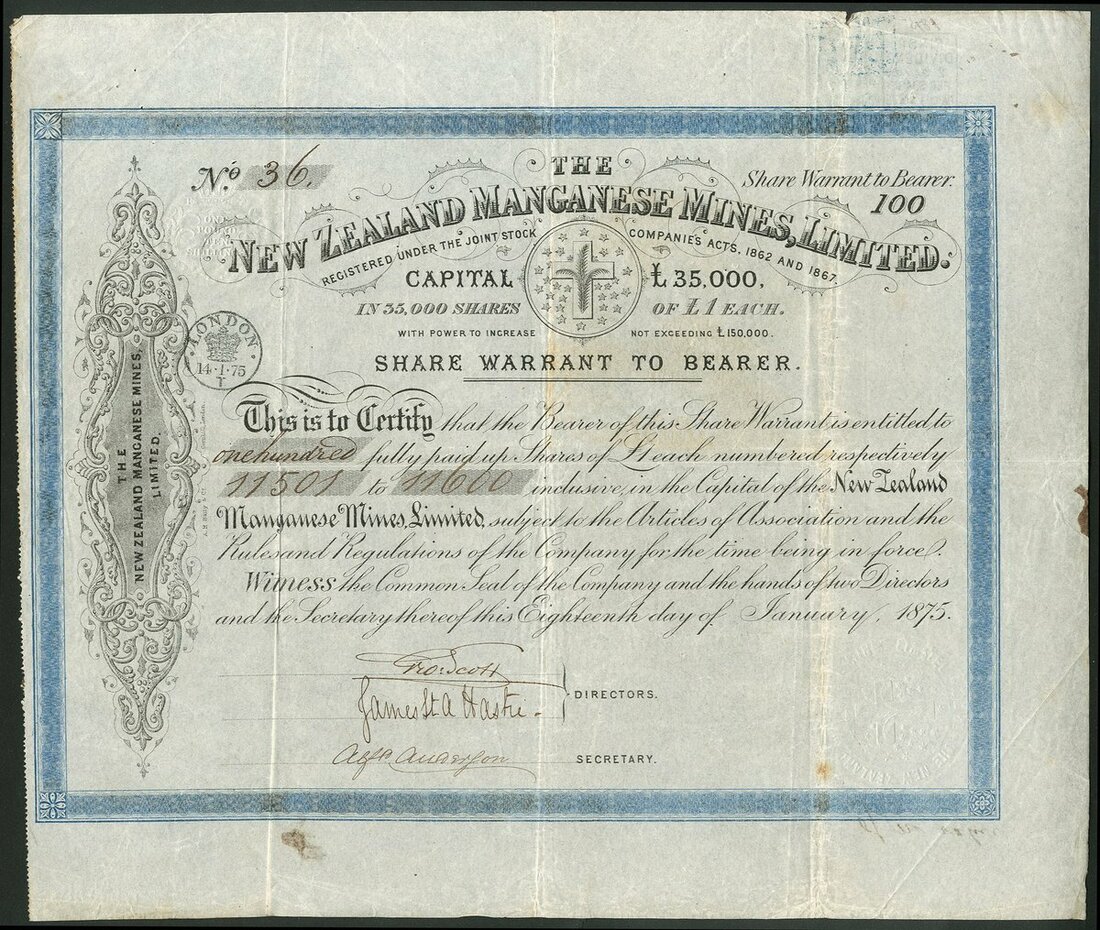 No. 36.
Share Warrant to Bearer.
100
THE
NEW ZEALAND MANGANESE MINES, LIMITED.
REGISTERED UNDER THE JOINT STOCK COMPANIES ACTS, 1862 AND 1867.
CAPITAL £35,000,
IN 35,000 SHARES OF £1 EACH.
WITH POWER TO INCREASE NOT EXCEEDING £150,000.
SHARE WARRANT TO BEARER.
LONDON
14·1·75
THE
NEW ZEALAND MANGANESE MINES,
LIMITED.
This is to Certify that the Bearer of this Share Warrant is entitled to
one hundred fully paid up Shares of £1 each numbered respectively
11501 to 11600 inclusive, in the Capital of the New Zealand
Manganese Mines, Limited, subject to the Articles of Association and the
Rules and Regulations of the Company for the time being in force.
Witness the Common Seal of the Company and the hands of two Directors
and the Secretary thereof this Eighteenth day of January, 1875.
Geo: Scott
James St A Haste
DIRECTORS.
Alfd. Anderson
SECRETARY.